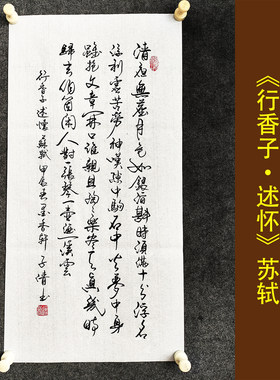 清夜無塵月色如銀酒斟時須滿十分浮名
浮利虛苦勞神嘆隙中駒石中火夢中身
雖抱文章開口誰親且陶陶樂盡天真幾時
歸去作個閑人對一張琴一壺酒一溪雲
行香子述懷蘇軾甲辰墨香軒子清書
《行香子·述怀》苏轼